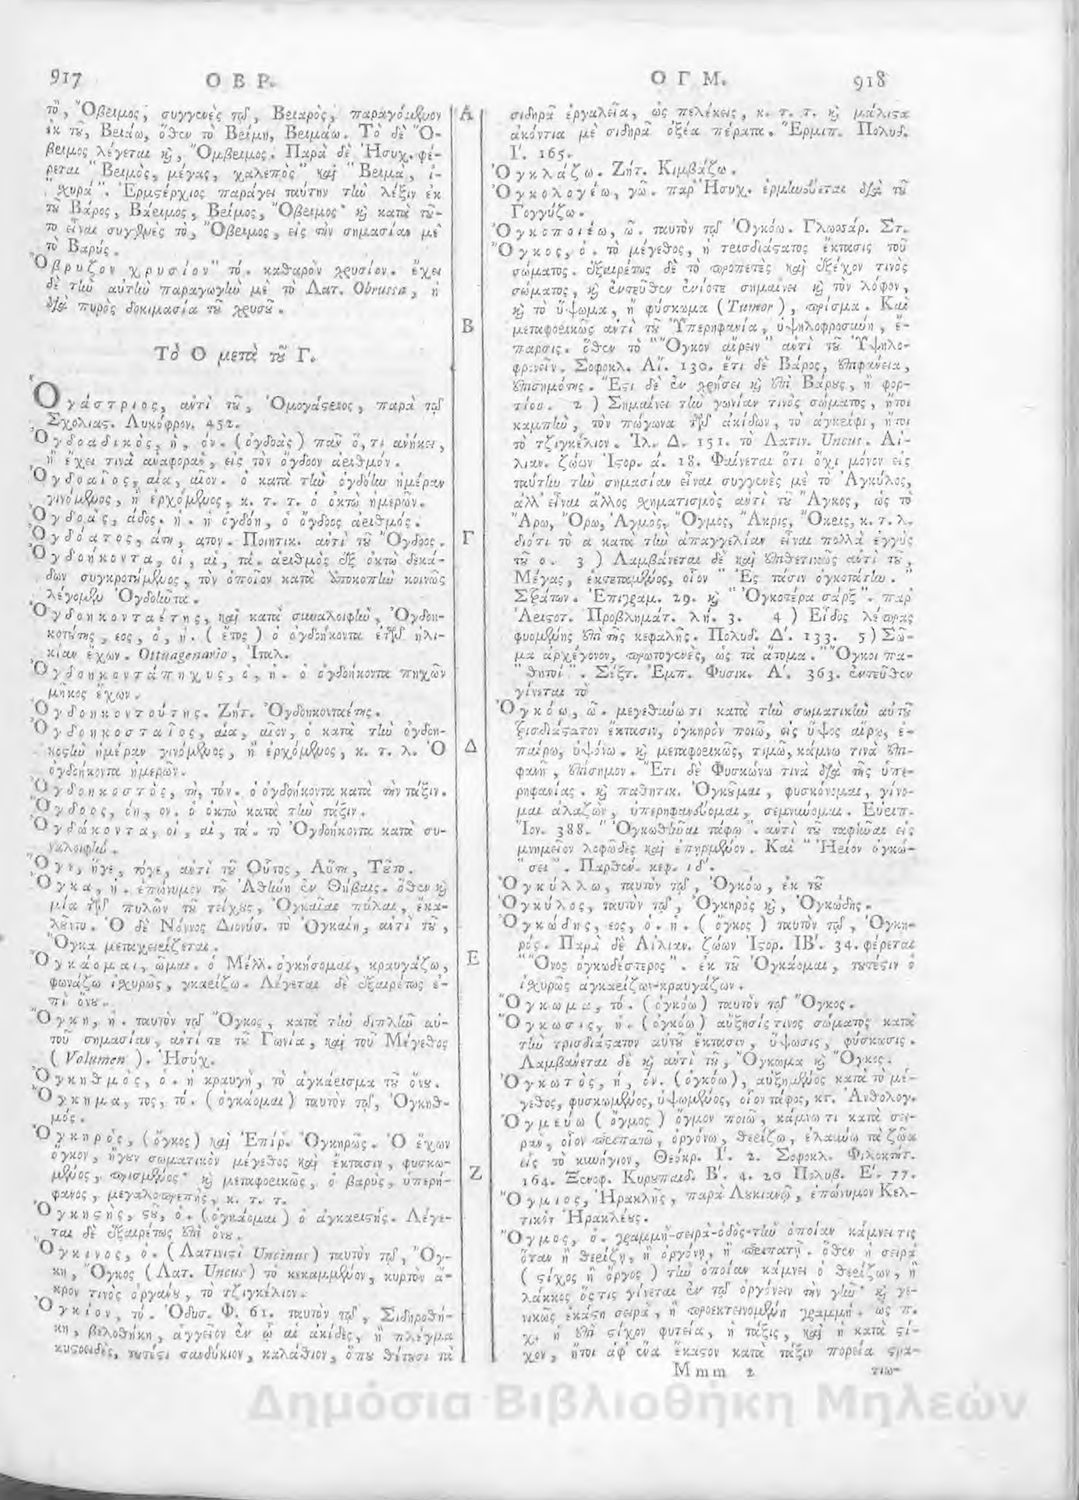 917 Ο Β Ρ.
τῦ, Ὄβριμος, συγγενὲς τῷ, Βριαρὸς, παραγόμενον
ἐκ τῦ, Βριάω, ὅθεν τὸ Βρίμη, Βριμάω. Τὸ δὲ Ὄ-
βριμος λέγεται καὶ, Ὄμβριμος. Παρὰ δὲ Ἡσυχ. φέ-
ρεται " Βριμὸς, μέγας, χαλεπὸς " καὶ " Βριμὰ, ἰ-
" χυρά ". Ἑρμστέρχιος παράγει ταύτην τὴν λέξιν ἐκ
τῦ Βάρος, Βάριμος, Βρίμος, Ὄβριμος· καὶ κατὰ τῦ-
το εἶναι συγγενὲς τὸ, Ὄβριμος, εἰς τὴν σημασίαν μὲ
τὸ Βαρύς.
Ὄβρυζον χρυσίον" τό. καθαρὸν χρυσίον. ἔχει
δὲ τὴν αὐτὴν παραγωγὴν μὲ τὸ Λατ. Obrussa, ἡ
διὰ πυρὸς δοκιμασία τῦ χρυσῦ.
Τὸ Ο μετὰ τῦ Γ.
Ὀγάστριος, αντὶ τῦ, Ὁμογάστριος, παρὰ τῷ
Σχολιας. Λυκόφρον. 452.
Ὀγδοαδικὸς, ή, όν. (ὀγδοὰς) πᾶν ὅ,τι ανήκει,
ἢ ἔχει τινὰ αναφορὰν, εἰς τὸν ὄγδοον ἀριθμόν.
Ὀγδοαῖος, αία, αῖον. ὁ κατὰ τὴν ὀγδόην ἡμέραν
γινόμενος, ἢ ἐρχόμενος, κ. τ. τ. ὁ ὀκτὼ ἡμερῶν.
Ὀγδοὰς, άδος. ἡ. ἡ ὀγδόη, ὁ ὄγδοος ἀριθμός.
Ὀγδόατος, άτη, ατον. Ποιητικ. αντὶ τῦ Ὄγδοος.
Ὀγδοήκοντα, οἱ, αἱ, τά. ἀριθμὸς ἐξ ὀκτὼ δεκά-
δων συγκροτύμενος, τὸν ὁποῖον κατὰ ὑποκοπὴν κοινῶς
λέγομεν Ὀγδοῆντα.
Ὀγδοηκονταέτης, καὶ κατὰ συναλοιφὴν, Ὀγδοη-
κοτύτης, εος, ὁ, ἡ. ( ἔτος ) ὁ ὀγδοήκοντα ἐτῶν ἡλι-
κίαν ἔχων. Ottuagenario, Ἰταλ.
Ὀγδοηκοντάπηχυς, ὁ, ἡ. ὁ ὀγδοήκοντα πηχῶν
μῆκος ἔχων.
Ὀγδοηκοντούτης. Ζήτ. Ὀγδοηκονταέτης.
Ὀγδοηκοσταῖος, αία, αῖον, ὁ κατὰ τὴν ὀγδοη-
κοςὴν ἡμέραν γινόμενος, ἢ ἐρχόμενος, κ. τ. λ. Ὁ
ὀγδοήκοντα ἡμερῶν.
Ὀγδοηκοστὸς, τὴ, τόν. ὁ ὀγδοήκοντα κατὰ τὴν τάξιν.
Ὄγδοος, όη, ον. ὁ ὀκτὼ κατὰ τὴν τάξιν.
Ὀγδώκοντα, οἱ, αἱ, τά. τὸ Ὀγδοήκοντα κατὰ συ-
ναλοιφήν.
Ὄγε, ἥγε, τόγε, αντὶ τῦ Οὗτος, Αὕτη, Τῦτο.
Ὄγκα, ἡ. ἐπώνυμον τῦ Ἀθηνῆ ἐν Θήβαις. ὅθεν καὶ
μία τῶν πυλῶν τῦ τείχυς, Ὀγκαῖαι πύλαι, ἐκα-
λῦντο. Ὁ δὲ Νόννος Διονύσ. τὸ Ὀγκαίη, αντὶ τῦ,
Ὄγκα μεταχειρίζεται.
Ὀγκάομαι, ῶμαι. ὁ Μέλλ. ὀγκήσομαι, κραυγάζω,
φωνάζω ἰχυρῶς, γκαρίζω. Λέγεται δὲ ἐξαιρέτως ἐ-
πὶ ὄνυ.
Ὄγκη, ἡ. ταυτὸν τῷ Ὄγκος, κατὰ τὴν διπλῆν αὐ-
τοῦ σημασίαν, αντί τε τῦ Γωνία, καὶ τοῦ Μέγεθος
( Volumen ). Ἡσύχ.
Ὀγκηθμὸς, ὁ. ἡ κραυγὴ, τὸ ἀγκάρισμα τῦ ὄνυ.
Ὄγκημα, τος, τό. ( ὀγκάομαι ) ταυτὸν τῷ, Ὀγκηθ-
μός.
Ὀγκηρὸς, (ὄγκος) καὶ Ἐπίρ. Ὀγκηρῶς. Ὁ ἔχων
ὄγκον, ἤγυν σωματικὸν μέγεθος καὶ ἔκτασιν, φυσκω-
μένος, πρισμένος· καὶ μεταφορικῶς, ὁ βαρὺς, ὑπερή-
φανος, μεγαλοπρεπὴς, κ. τ. τ.
Ὀγκηςὴς, ςῦ, ὁ. (ὀγκάομαι) ὁ ἀγκαριςής. Λέγε-
ται δὲ ἐξαιρέτως ἐπὶ ὄνυ.
Ὄγκινος, ὁ. ( Λατινιςὶ Uncinus ) ταυτὸν τῷ, Ὄγ-
κη, Ὄγκος ( Λατ. Uncus ) τὸ κεκαμμένον, κυρτὸν ἄ-
κρον τινὸς ὀργάνυ, τὸ τζιγκέλιον.
Ὄγκιον, τό. Ὀδυσ. Φ. 61. ταυτὸν τῷ, Σιδηροθή-
κη, βελοθήκη, αγγεῖον ἐν ᾧ αἱ ἀκίδες, ἢ πλέγμα
κυςοειδὲς, τυτέςι σανδύκιον, καλάθιον, ὅπυ θέτυσι τὰ
Α
Β
Γ
Δ
Ε
Ζ
Ο Γ Μ. 918
σιδηρᾶ ἐργαλεῖα, ὡς πελέκεις, κ. τ. τ. καὶ μάλιςα
ἀκόντια μὲ σιδηρᾶ ὀξέα πέρατα. Ἕρμιπ. Πολυδ.
Ι'. 165.
Ὀγκλάζω. Ζήτ. Κιμβάζω.
Ὀγκολογέω, γῶ. παρ' Ἡσυχ. ἑρμηνεύεται διὰ τῦ
Γογγύζω.
Ὀγκοποιέω, ῶ. ταυτὸν τῷ Ὀγκόω. Γλωσσάρ. Στ.
Ὄγκος, ὁ. τὸ μέγεθος, ἡ τρισδιάςατος ἔκτασις τοῦ
σώματος. ἐξαιρέτως δὲ τὸ προπετὲς καὶ ἐξέχον τινὸς
σώματος, καὶ ἐντεῦθεν ἐνίοτε σημαίνει καὶ τὸν λόφον,
καὶ τὸ ὕψωμα, ἢ φύσκωμα (Tumor), πρίσμα. Καὶ
μεταφορικῶς αντὶ τῦ Ὑπερηφανία, ὑψηλοφροσύνη, ἔ-
παρσις. ὅθεν τὸ "Ὄγκον αἴρειν" αντὶ τῦ Ὑψηλο-
φρονεῖν. Σοφοκλ. Αἴ. 130. ἔτι δὲ Βάρος, ἐπιφάνεια,
ἐπισημότης. Ἔςι δὲ ἐν χρήσει καὶ ἐπὶ Βάρυς, ἢ φορ-
τίου. 2 ) Σημαίνει τὴν γωνίαν τινὸς σώματος, ἤτοι
καμπὴν, τὸν πώγωνα τῶν ἀκίδων, τὸ ἀγκείφι, ἤτοι
τὸ τζιγκέλιον. Ἰλ. Δ. 151. τὸ Λατιν. Uncus. Αἰ-
λιαν. ζώων Ἱςορ. ά. 18. Φαίνεται ὅτι ὄχι μόνον εἰς
ταύτην τὴν σημασίαν εἶναι συγγενὲς μὲ τὸ Ἀγκύλος,
ἀλλ' εἶναι ἄλλος χηματισμὸς αντὶ τῦ Ἄγκος, ὡς τὸ
Ἄρω, Ὄρω, Ἀγμος, Ὄγμος, Ἄκρις, Ὄκρις, κ. τ. λ.
διότι τὸ α κατὰ τὴν ἀπαγγελίαν εἶναι πολλὰ ἐγγὺς
τῦ ο. 3 ) Λαμβάνεται δὲ καὶ ἐπιθετικῶς αντὶ τῦ,
Μέγας, ἐκτεταμένος, οἷον " Ἐς τάσιν ὀγκοτάτην. "
Στράτων. Ἐπιγραμ. 29. καὶ " Ὀγκοτέρα σάρξ ". παρ'
Ἀριςοτ. Προβληματ. λή. 3. 4 ) Εἶδος λέπρας
φυομένης ἐπὶ τῆς κεφαλῆς. Πολυδ. Δ'. 133. 5 ) Σῶ-
μα ἀρχέγονον, πρωτογενὲς, ὡς τὰ ἄτομα. " Ὄγκοι πα-
" θητοί ". Σέξτ. Ἐμπ. Φυσικ. Α'. 363. ἐντεῦθεν
γίνεται τὸ
Ὀγκόω, ῶ. μεγεθύνω τι κατὰ τὴν σωματικὴν αὐτῦ
τρισδιάςατον ἔκτασιν, ὀγκηρὸν ποιῶ, εἰς ὕψος αἴρω, ἐ-
παίρω, ὑψόνω. καὶ μεταφορικῶς, τιμῶ, κάμνω τινὰ ἐπι-
φανῆ, ἐπίσημον. Ἔτι δὲ Φυσκώνω τινὰ διὰ τῆς ὑπε-
ρηφανίας. καὶ παθητικ. Ὀγκῦμαι, φυσκόνομαι, γίνο-
μαι ἀλαζὼν, ὑπερηφανεύομαι, σεμνύνομαι. Εὐριπ.
Ἴον. 388. " Ὀγκωθῆναι τάφῳ ". αντὶ τῦ ταφῆναι εἰς
μνημεῖον λοφῶδες καὶ ἐπηρμένον. Καὶ " Ἠρίον ὀγκώ-
" σει ". Παρθεν. κεφ. ιδ'.
Ὀγκύλλω, ταυτὸν τῷ, Ὀγκόω, ἐκ τῦ
Ὀγκύλος, ταυτὸν τῷ, Ὀγκηρὸς καὶ, Ὀγκώδης.
Ὀγκώδης, εος, ὁ. ἡ. ( ὄγκος ) ταυτὸν τῷ, Ὀγκη-
ρός. Παρὰ δὲ Αἰλιαν. ζώων Ἱςορ. ΙΒ'. 34. φέρεται
" Ὄνος ὀγκωδέςτερος ". ἐκ τῦ Ὀγκάομαι, τυτέςιν ὁ
ἰχυρῶς ἀγκαρίζων-κραυγάζων.
Ὄγκωμα, τό. (ὀγκόω) ταυτὸν τῷ Ὄγκος.
Ὄγκωσις, ἡ. ( ὀγκόω ) αὔξησίς τινος σώματος κατὰ
τὴν τρισδιάςατον αὐτῦ ἔκτασιν, ὕψωσις, φύσκασις.
Λαμβάνεται δὲ καὶ αντὶ τῦ, Ὄγκωμα καὶ Ὄγκος.
Ὀγκωτὸς, ή, όν. (ὀγκόω), αὐξημένος κατὰ τὸ μέ-
γεθος, φυσκωμένος, ὑψωμένος, οἷον τάφος, κτ. Ἀνθολογ.
Ὀγμεύω ( ὄγμος ) ὄγμον ποιῶ, κάμνω τι κατὰ σει-
ρὰν, οἷον περιπατῶ, ὀργόνω, θερίζω, ἐλαύνω τὰ ζῶα
εἰς τὸ κυνήγιον, Θεόκρ. Ι'. 2. Σοφοκλ. Φιλοκτήτ.
164. Ξενοφ. Κυρυπαιδ. Β'. 4. 20 Πολυβ. Ε'. 77.
Ὄγμιος, Ἡρακλῆς, παρὰ Λυκιανῷ, ἐπώνυμον Κελ-
τικὸν Ἡρακλέυς.
Ὄγμος, ὁ. γραμμὴ-σειρὰ-ὁδὸς-τὴν ὁποίαν κάμνει τις
ὅταν ἢ θερίζῃ, ἢ ὀργόνῃ, ἢ περιπατῇ. ὅθεν ἡ σειρὰ
( ςίχος ἢ ὄργος ) τὴν ὁποίαν κάμνει ὁ θερίζων, ἢ
λάκκος ὅςτις γίνεται ἐν τῷ ὀργόνειν τὴν γῆν· καὶ γε-
νικῶς ἑκάςη σειρὰ, ἢ προεκτεινομένη γραμμή. ὡς π.
χ. ἡ ἐπὶ ςίχον φυτεία, ἡ τάξις, καὶ ἡ κατὰ ςί-
χον, ἤτοι ἀφ' ἑνὸς ἕκαςον κατὰ τάξιν πορεία ςρα-
M m m 2 τιω-
Δημόσια Βιβλιοθήκη Μηλεών